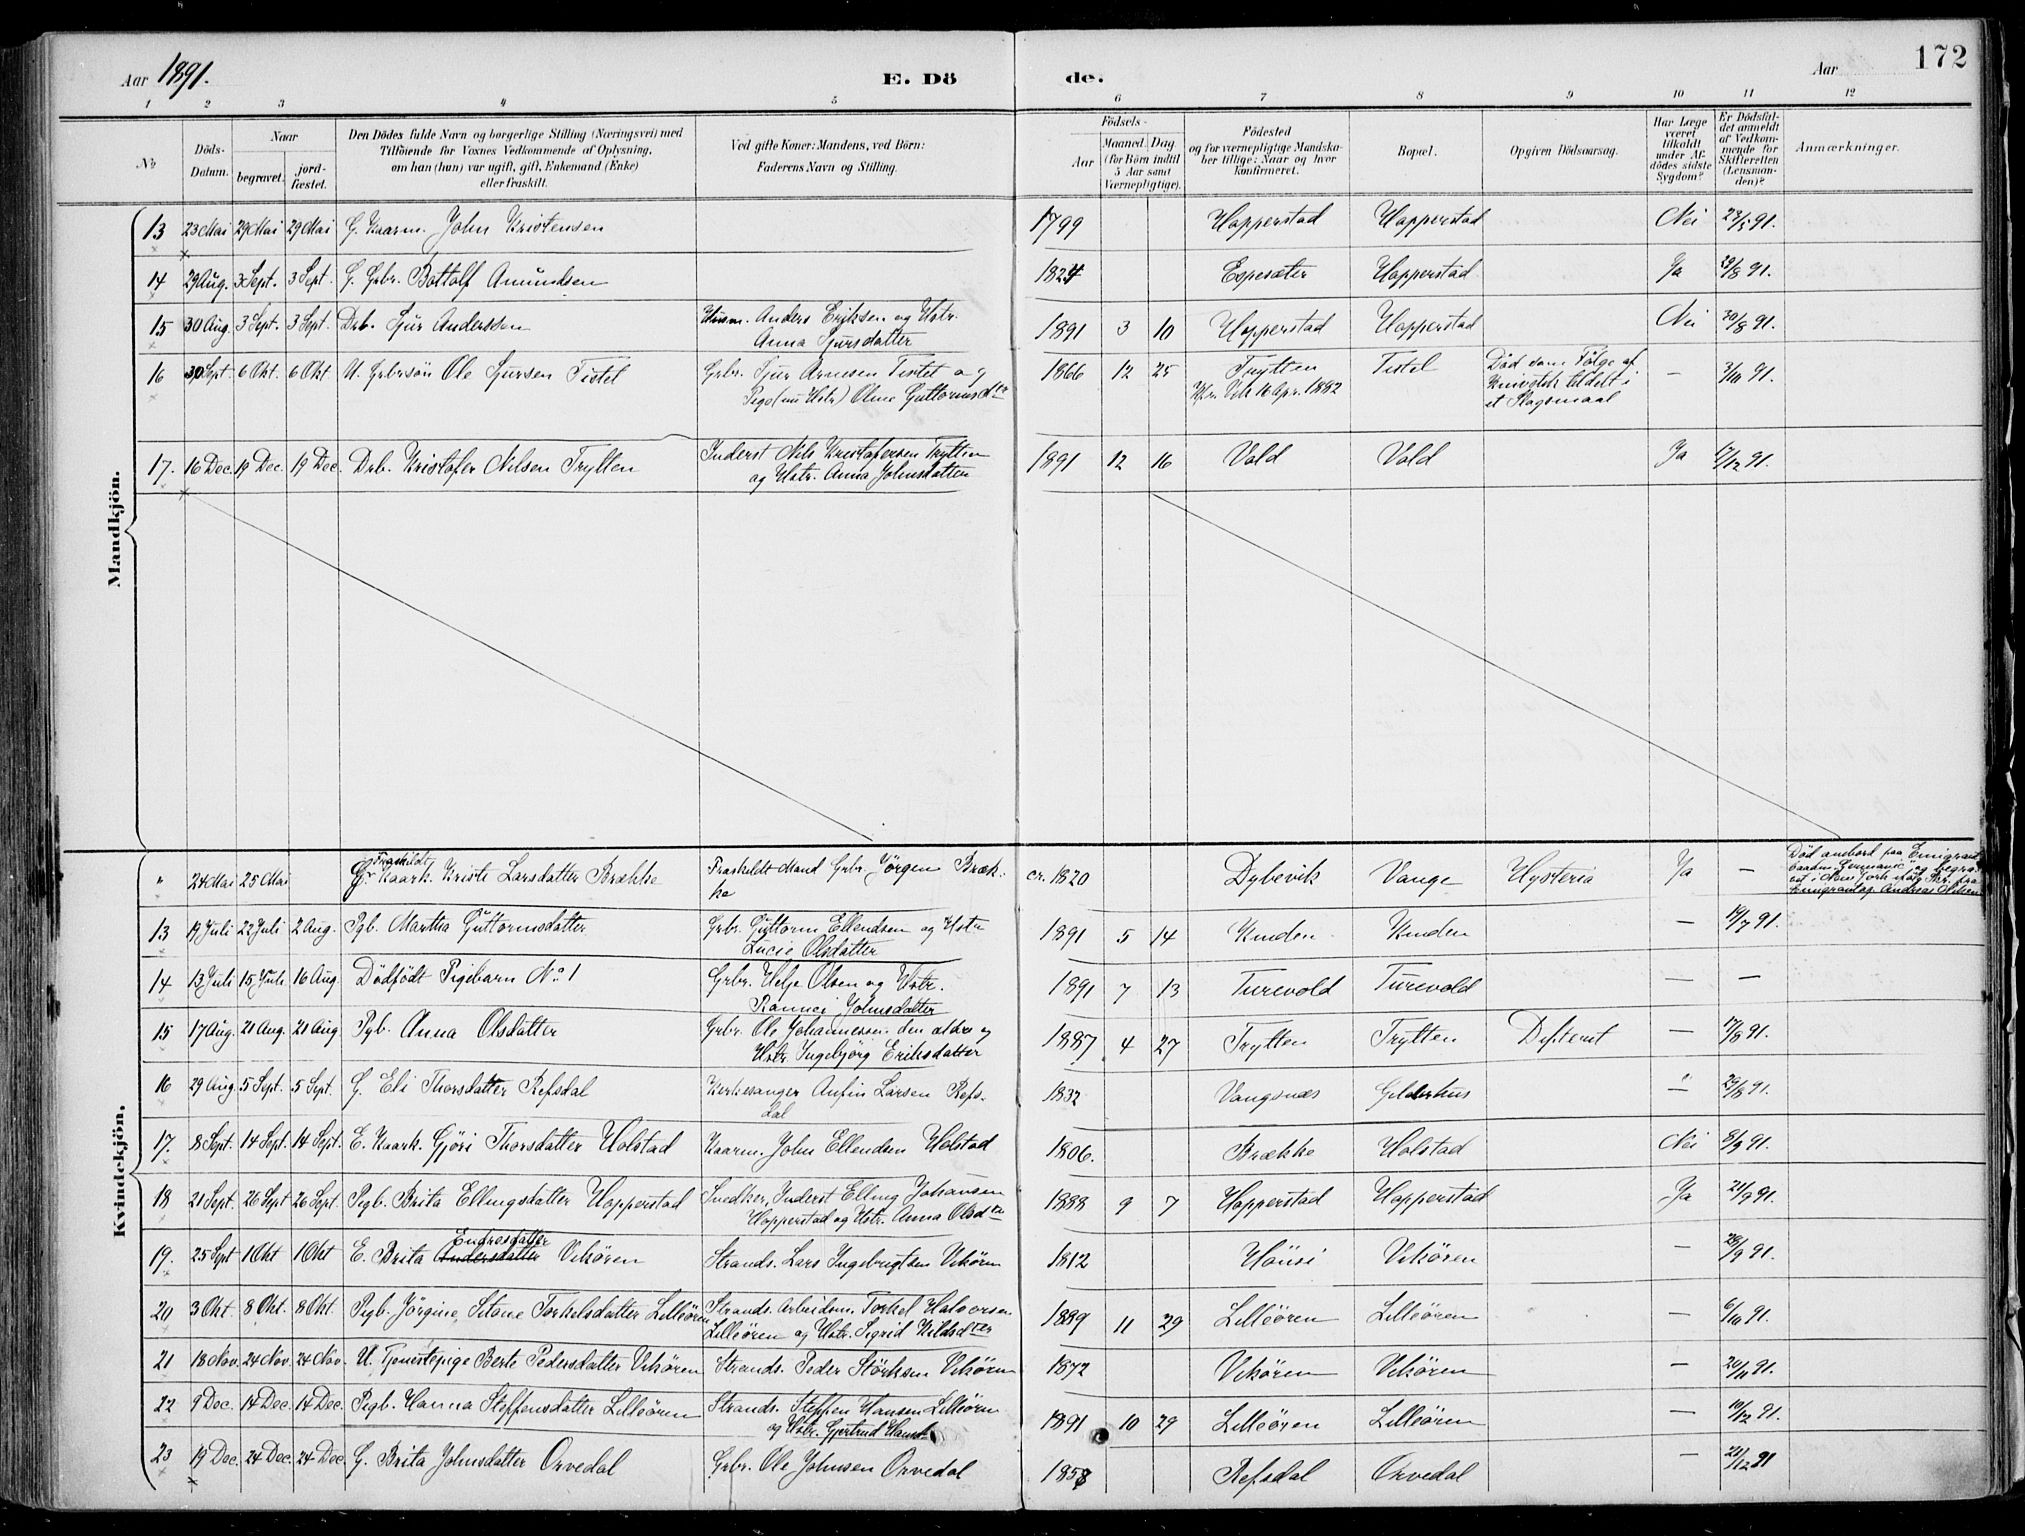 Aar 1891. E. Dö de. Aar 172
1 2 3 4 5 6 7 8 9 10 11 12
No Döds-Datum. Naar begravet. jordfæstet. Den Dödes fulde Navn og borgerlige Stilling (Næringsvei) med Tilföiende for Voxnes Vedkommende af Oplysning, om han (hun) var ugift, gift, Enkemand (Enke) eller fraskilt. Ved gifte Koner: Mandens, ved Börn: Faderens Navn og Stilling. Födsels- Aar Maaned. Dag (for Börn indtil 5 Aar samt Værnepligtige). Födested og for værnepligtige Mandskaber tillige: Naar og hvor konfirmeret. Bopæl. Opgiven Dödsaarsag. Har Læge været tilkaldt under Afdödes sidste Sygdom? Er Dödsfaldet anmeldt af Vedkommende for Skifteretten (Lensmanden)? Anmærkninger.
Mandkjön.
13 23 Mai 29 Mai 29 Mai G. Kaarm. John Kristensen 1799 Hopperstad Hopperstad Nei 23/5 91.
14 29 Aug. 3 Sept. 3 Sept. G. Grbr. Bottolf Amundsen 1824 Espesæter Hopperstad Ja 29/8 91.
15 30 Aug. 3 Sept. 3 Sept. Drb. Sjur Anderssen Husm. Anders Eriksen og Hstr. 1891 3 10 Hopperstad Hopperstad Nei 30/8 91.
Anna Sjursdatter
16 30 Sept. 6 Okt. 6 Okt. U. Grbrsön Ole Sjursen Tistel Grbr. Sjur Arnesen Tistel og 1866 12 25 Trytten Tistel Död som Fölge af — 3/10 91.
Pige (nu Hstr) Oline Guttormsdtr Kfr. Vik 16 Apr. 1882 Knivstik tildelt i
et Slagsmaal
17. 16 Dec. 19 Dec. 19 Dec. Drb. Kristofer Nilsen Trytten Inderst Nils Kristofersen Trytten 1891 12 16 Vold Vold Ja 17/12 91.
og Hstr. Anna Johnsdatter
Kvindekjön.
Fraskildt Död ombord paa Emigrant
" 24 Mai 25 Mai Kaark. Kristi Larsdatter Brække Fraskildt Mand Grbr. Jörgen Bræk- cr. 1820 Dybevik Vange Hysteria Ja —
ke
13 19 Juli 22 Juli 2 Aug. Pgb. Martha Guttormsdatter Grbr. Guttorm Ellendsen og Hstr 1891 5 14 Kinden Kinden — 19/7 91.
Lucie Olsdatter
14 13 Juli 15 Juli 16 Aug. Dödfödt Pigebarn No 1 Grbr. Helje Olsen og Hstr. 1891 7 13 Turevold Turevold — —
Rannei Johnsdatter
15 17 Aug. 21 Aug. 21 Aug. Pgb. Anna Olsdatter Grbr. Ole Johannessen den ældre og 1887 4 27 Trytten Trytten Difterit — 17/8 91.
Hstr. Ingebjörg Eriksdatter
16 29 Aug. 5 Sept. 5 Sept. G. Eli Thorsdatter Refsdal Kirkesanger Anfin Larsen Refs- 1832 Vangsnæs Gilderhus — 29/8 91.
dal
17. 8 Sept. 14 Sept. 14 Sept. E. Kaark. Gjöri Thorsdatter Holstad Kaarm. John Ellendsen Holstad 1806. Brække Holstad Nei 8/9 91.
18 21 Sept. 26 Sept 26 Sept. Pigb. Brita Ellingsdatter Hopperstad Snedker, Inderst Elling Johansen 1888 9 7 Hopperstad Hopperstad Ja 21/9 91.
Hopperstad og Hstr. Anna Olsdtr
Endresdatter
19. 25 Sept 1 Okt 1 Okt E. Brita Andersdatter Vikören Strands. Lars Ingebrigtsen Vikören 1812 Hönsi Vikören — 28/9 91.
20 3 Okt. 8 Okt. 8 Okt. Pigb. Jörgine, Sitane Torkelsdatter Lilleören Strands. Arbeidsm. Torkel Halvorsen 1889 11 29 Lilleören Lilleören — 6/10 91.
Lilleören og Hstr. Sigrid Kildsdter
21 18 Nov. 24 Nov. 24 Nov. U. Tjenestepige Berte Pedersdatter Vikören Strands. Peder Störksen Vikören 1872 Vikören Vikören — 20/11 91.
22 9 Dec. 14 Dec. 14 Dec. Pigb. Hanna Steffensdatter Lilleören Strands. Steffen Hansen Lilleören 1891 10 29 Lilleören Lilleören — 10/12 91.
og Hstr. Gjertrud Hansd
23 19 Dec. 24 Dec. 24 Dec. G. Brita Johnsdatter Orvedal Grbr. Ole Johnsen Orvedal 1858 Refsdal Orvedal — 21/12 91